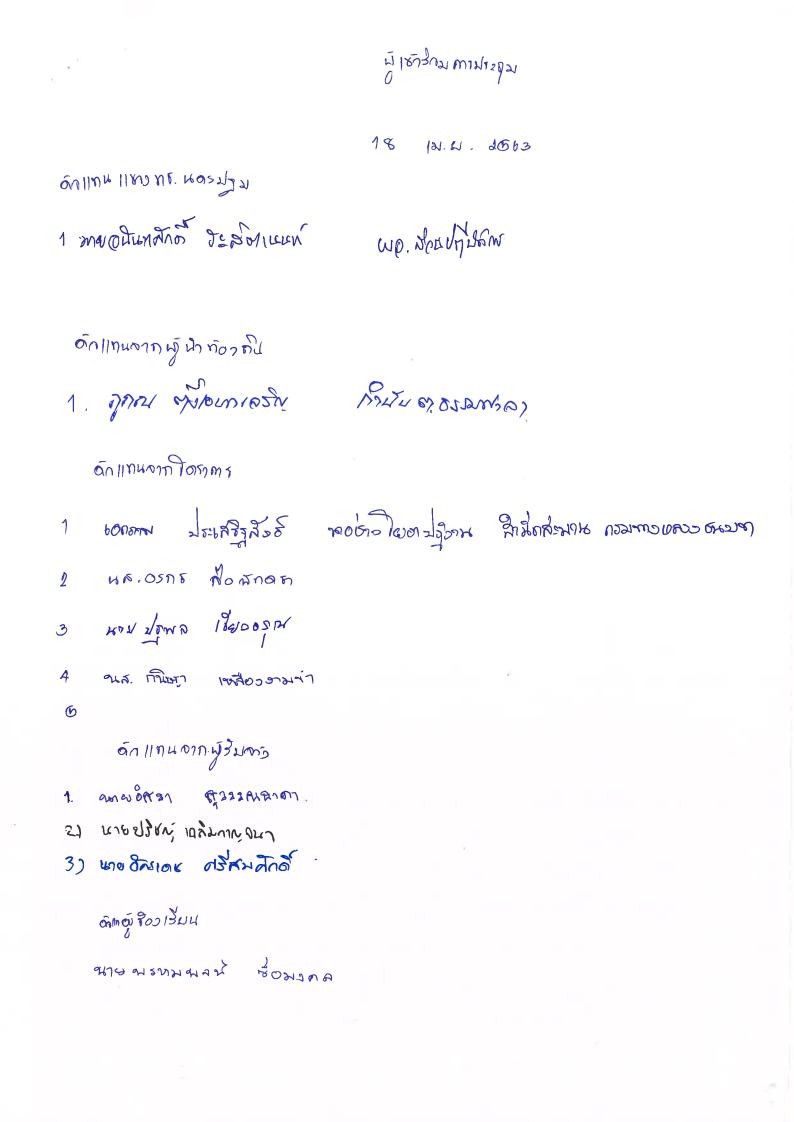 ผู้เข้าร่วมการประชุม
18 เม.ย. 2563
ตัวแทน แขวง ทช. นครปฐม
1 นายอนันทศักดิ์ ผอ. ส่วนปฏิบัติการ
ตัวแทนจากผู้นำท้องถิ่น
1. กำนัน ต.ธรรมศาลา
ตัวแทนจากโครงการ
1 เอกภพ ประเสริฐสังข์ นายช่างโยธาปฏิบัติงาน สำนักสะพาน กรมทางหลวงชนบท
2 นส. วรกร
3 นาย ปฐพล เขียวอรุณ
4 นส. กนิษฐา เหลืองงามขำ
5
ตัวแทนจากผู้รับจ้าง
1. นายอิศรา สุวรรณธาดา.
2) นายปริชญ์ เฉลิมกาญจนา
3) นาย ศรีสมศักดิ์
ตัวแทนผู้ร้องเรียน
นาย ชื่อมงคล